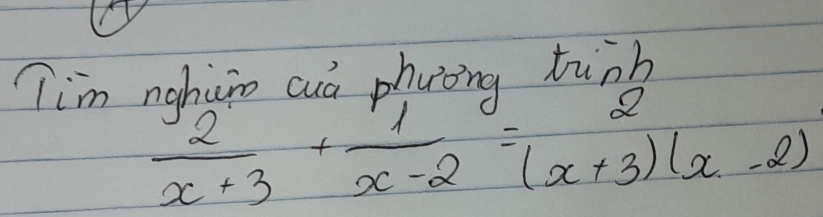 Tìm nghiệm của phương trình
2/(x + 3) + 1/(x - 2) = 2/((x + 3)(x - 2))